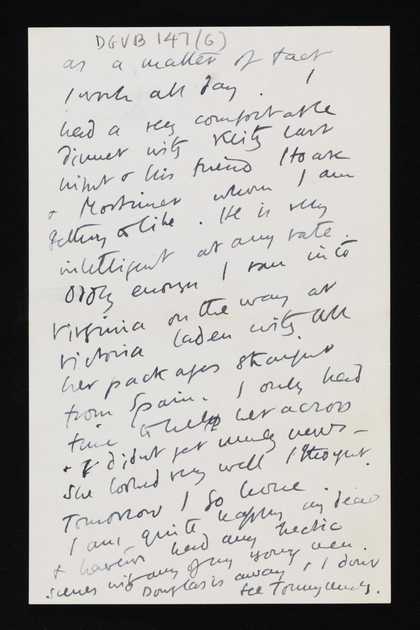 DGVB 147(6)
as a matter of fact
I work all day. I
had a very comfortable
dinner with Keith last
night & his friend
& Mortimer whom I am
getting to like. He is very
intelligent at any rate.
Oddly enough I ran into
Virginia on the way at
Victoria laden with all
her packages straight
from Spain. I only had
time to help her across
& I didnt get much news –
She looked very well I thought.
Tomorrow I go home.
I am quite happy my dear
& haven't had any hectic
scenes with any of my young men.
Douglas is away & I dont
see Tommy much.